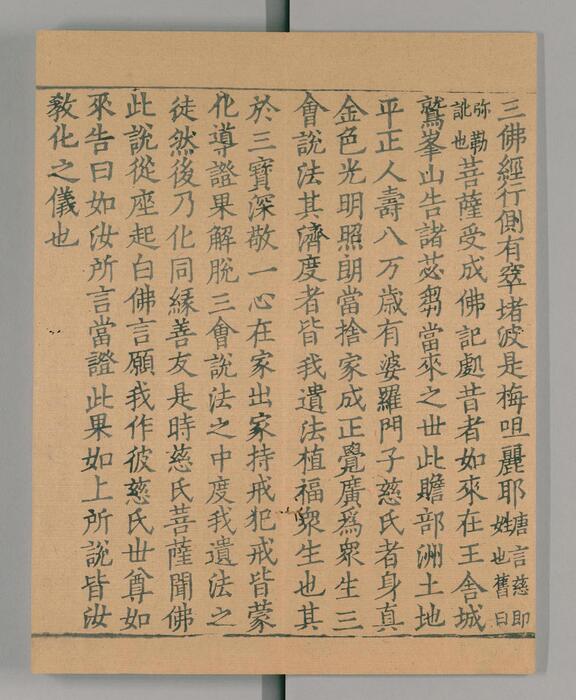 三佛經行側有窣堵波是梅呾麗耶唐言慈即姓也舊曰
弥勒訛也菩薩受成佛記處昔者如來在王舍城
鷲峯山告諸苾芻當來之世此贍部洲土地
平正人壽八万歲有婆羅門子慈氏者身真
金色光明照朗當捨家成正覺廣爲衆生三
會說法其濟度者皆我遺法植福衆生也其
於三寶深敬一心在家出家持戒犯戒皆蒙
化導證果解脫三會說法之中度我遺法之
徒然後乃化同緣善友是時慈氏菩薩聞佛
此說從座起白佛言願我作彼慈氏世尊如
來告曰如汝所言當證此果如上所說皆汝
敎化之儀也